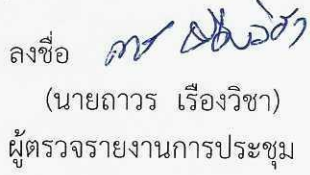 ลงชื่อ
(นายถาวร เรืองวิชา)
ผู้ตรวจรายงานการประชุม